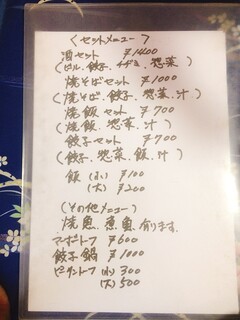 〈セットメニュー〉
酒セット ¥1400
(ビール、餃子、チヂミ、惣菜)
焼そばセット ¥1000
(焼そば、餃子、惣菜、汁)
焼飯セット ¥700
(焼飯、惣菜、汁)
餃子セット ¥700
(餃子、惣菜、飯、汁)
飯 (小) ¥100
(大) ¥200
(その他メニュー)
焼魚、煮魚、有ります。
マーボトーフ ¥600
餃子鍋 ¥1000
ピータントーフ (小) 300
(大) 500